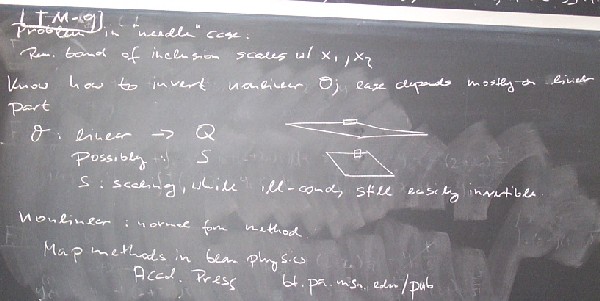 [TM-9]
Problem in "needle" case:
Rem. bound of inclusion scales w/ x1, x2
Know how to invert nonlinear. Oj ease depends mostly on linear
part
linear → Q
Possibly: S
S: scaling, while ill-cond, still easily invertible.
Nonlinear: normal form method
Map methods in beam physics
Acad. Press bt.pa.msu.edu/pub